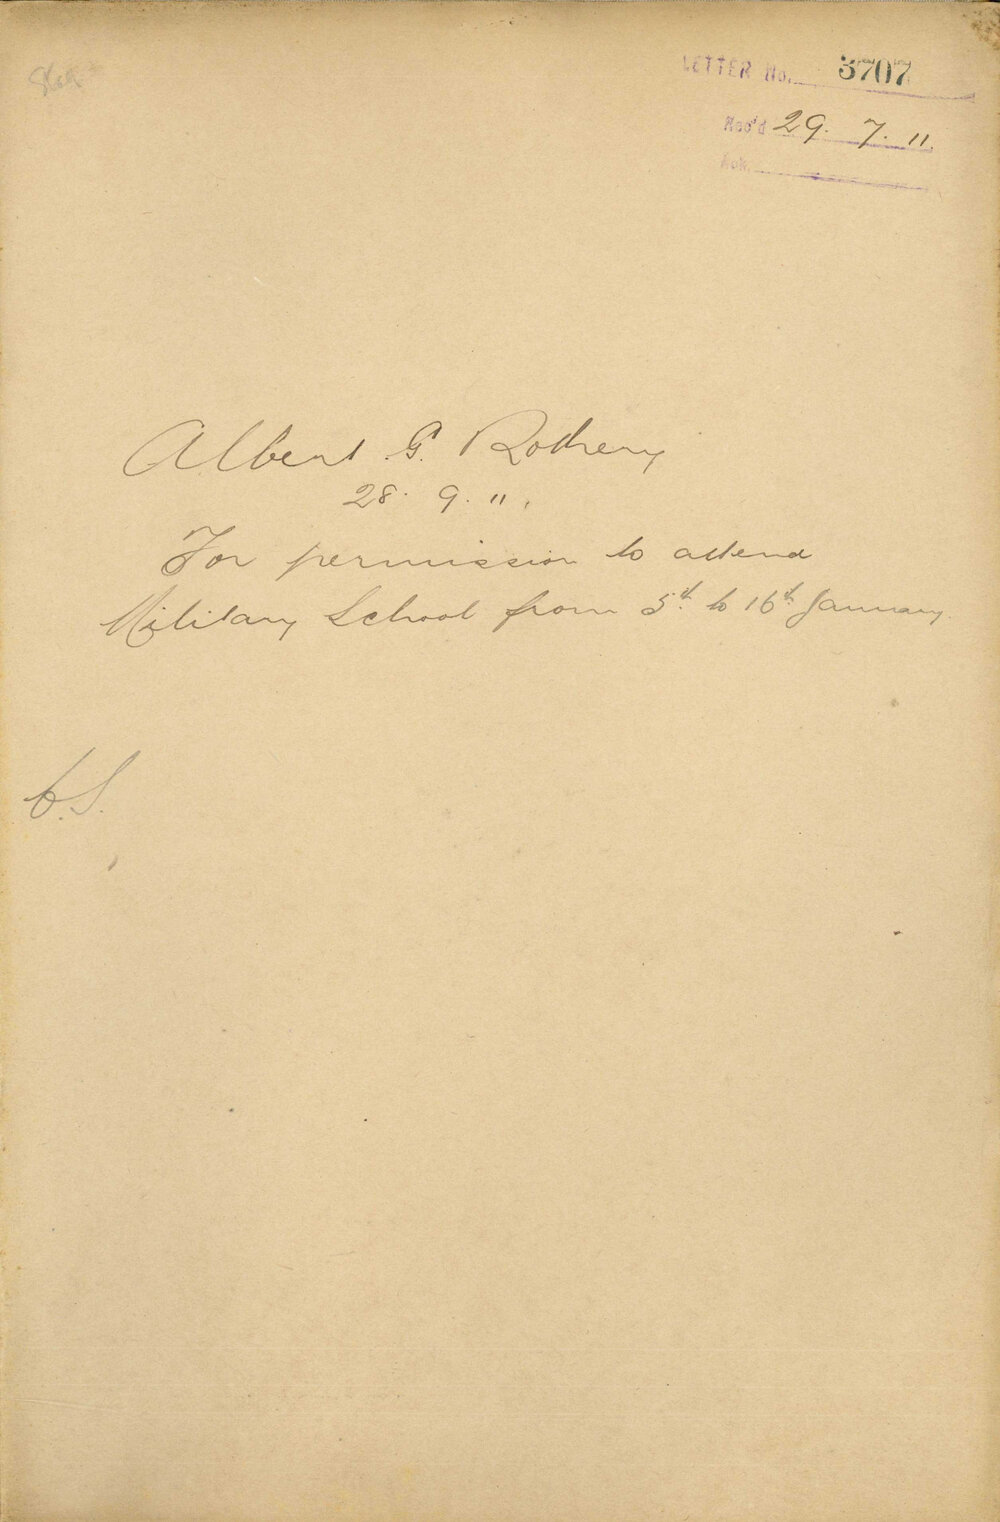 LETTER No. 3707
Rec'd 29. 7. 11.
Ack.
Albert G. Rothery
28. 9. 11.
For permission to attend
Military School from 5th. to 16th. January
C.S.